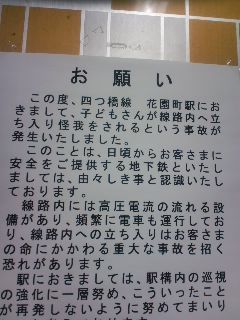 お願い
この度、四つ橋線　花園町駅にお
きまして、子どもさんが線路内へ立
ち入り怪我をされるという事故が
発生いたしました。
このことは、日頃からお客さまに
安全をご提供する地下鉄といたし
ましては、由々しき事と認識いたし
ております。
線路内には高圧電流の流れる設
備があり、頻繁に電車も運行してお
り、線路内への立ち入りはお客さま
の命にかかわる重大な事故を招く
恐れがあります。
駅におきましては、駅構内の巡視
の強化に一層努め、こういったこと
が再発しないように努めてまいり